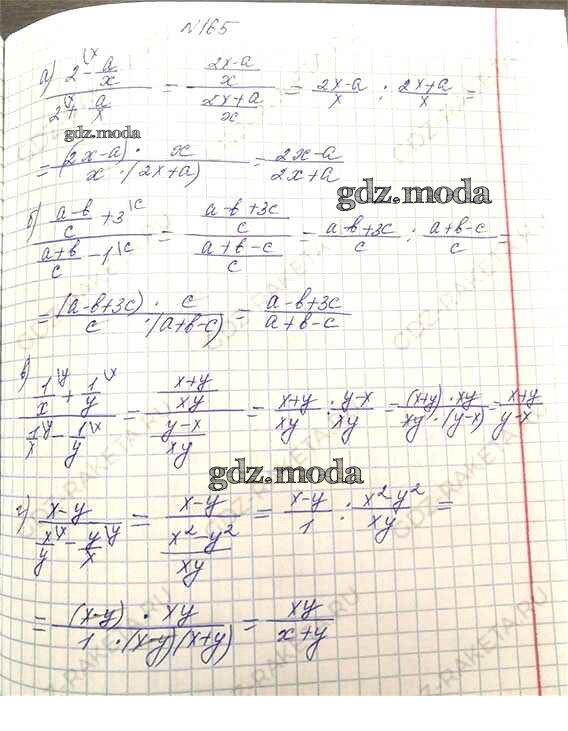 №165
а) (2\x - a/x)/(2\x + a/x) = ((2x-a)/x)/((2x+a)/x) = (2x-a)/x : (2x+a)/x =
gdz.moda
= ((2x-a) · x)/(x · (2x+a)) = (2x-a)/(2x+a)
gdz.moda
б) ((a-b)/c + 3\c)/((a+b)/c - 1\c) = ((a-b+3c)/c)/((a+b-c)/c) = (a-b+3c)/c : (a+b-c)/c =
= ((a-b+3c) · c)/(c · (a+b-c)) = (a-b+3c)/(a+b-c)
в) (1/x\y + 1/y\x)/(1/x\y - 1/y\x) = ((x+y)/xy)/((y-x)/xy) = (x+y)/xy : (y-x)/xy = ((x+y) · xy)/(xy · (y-x)) = (x+y)/(y-x)
gdz.moda
г) (x-y)/(x/y\x - y/x\y) = (x-y)/((x²-y²)/xy) = (x-y)/1 : (x² y²)/xy =
= ((x-y) · xy)/(1 · (x-y)(x+y)) = xy/(x+y)
GDZ-RAKETA.RU